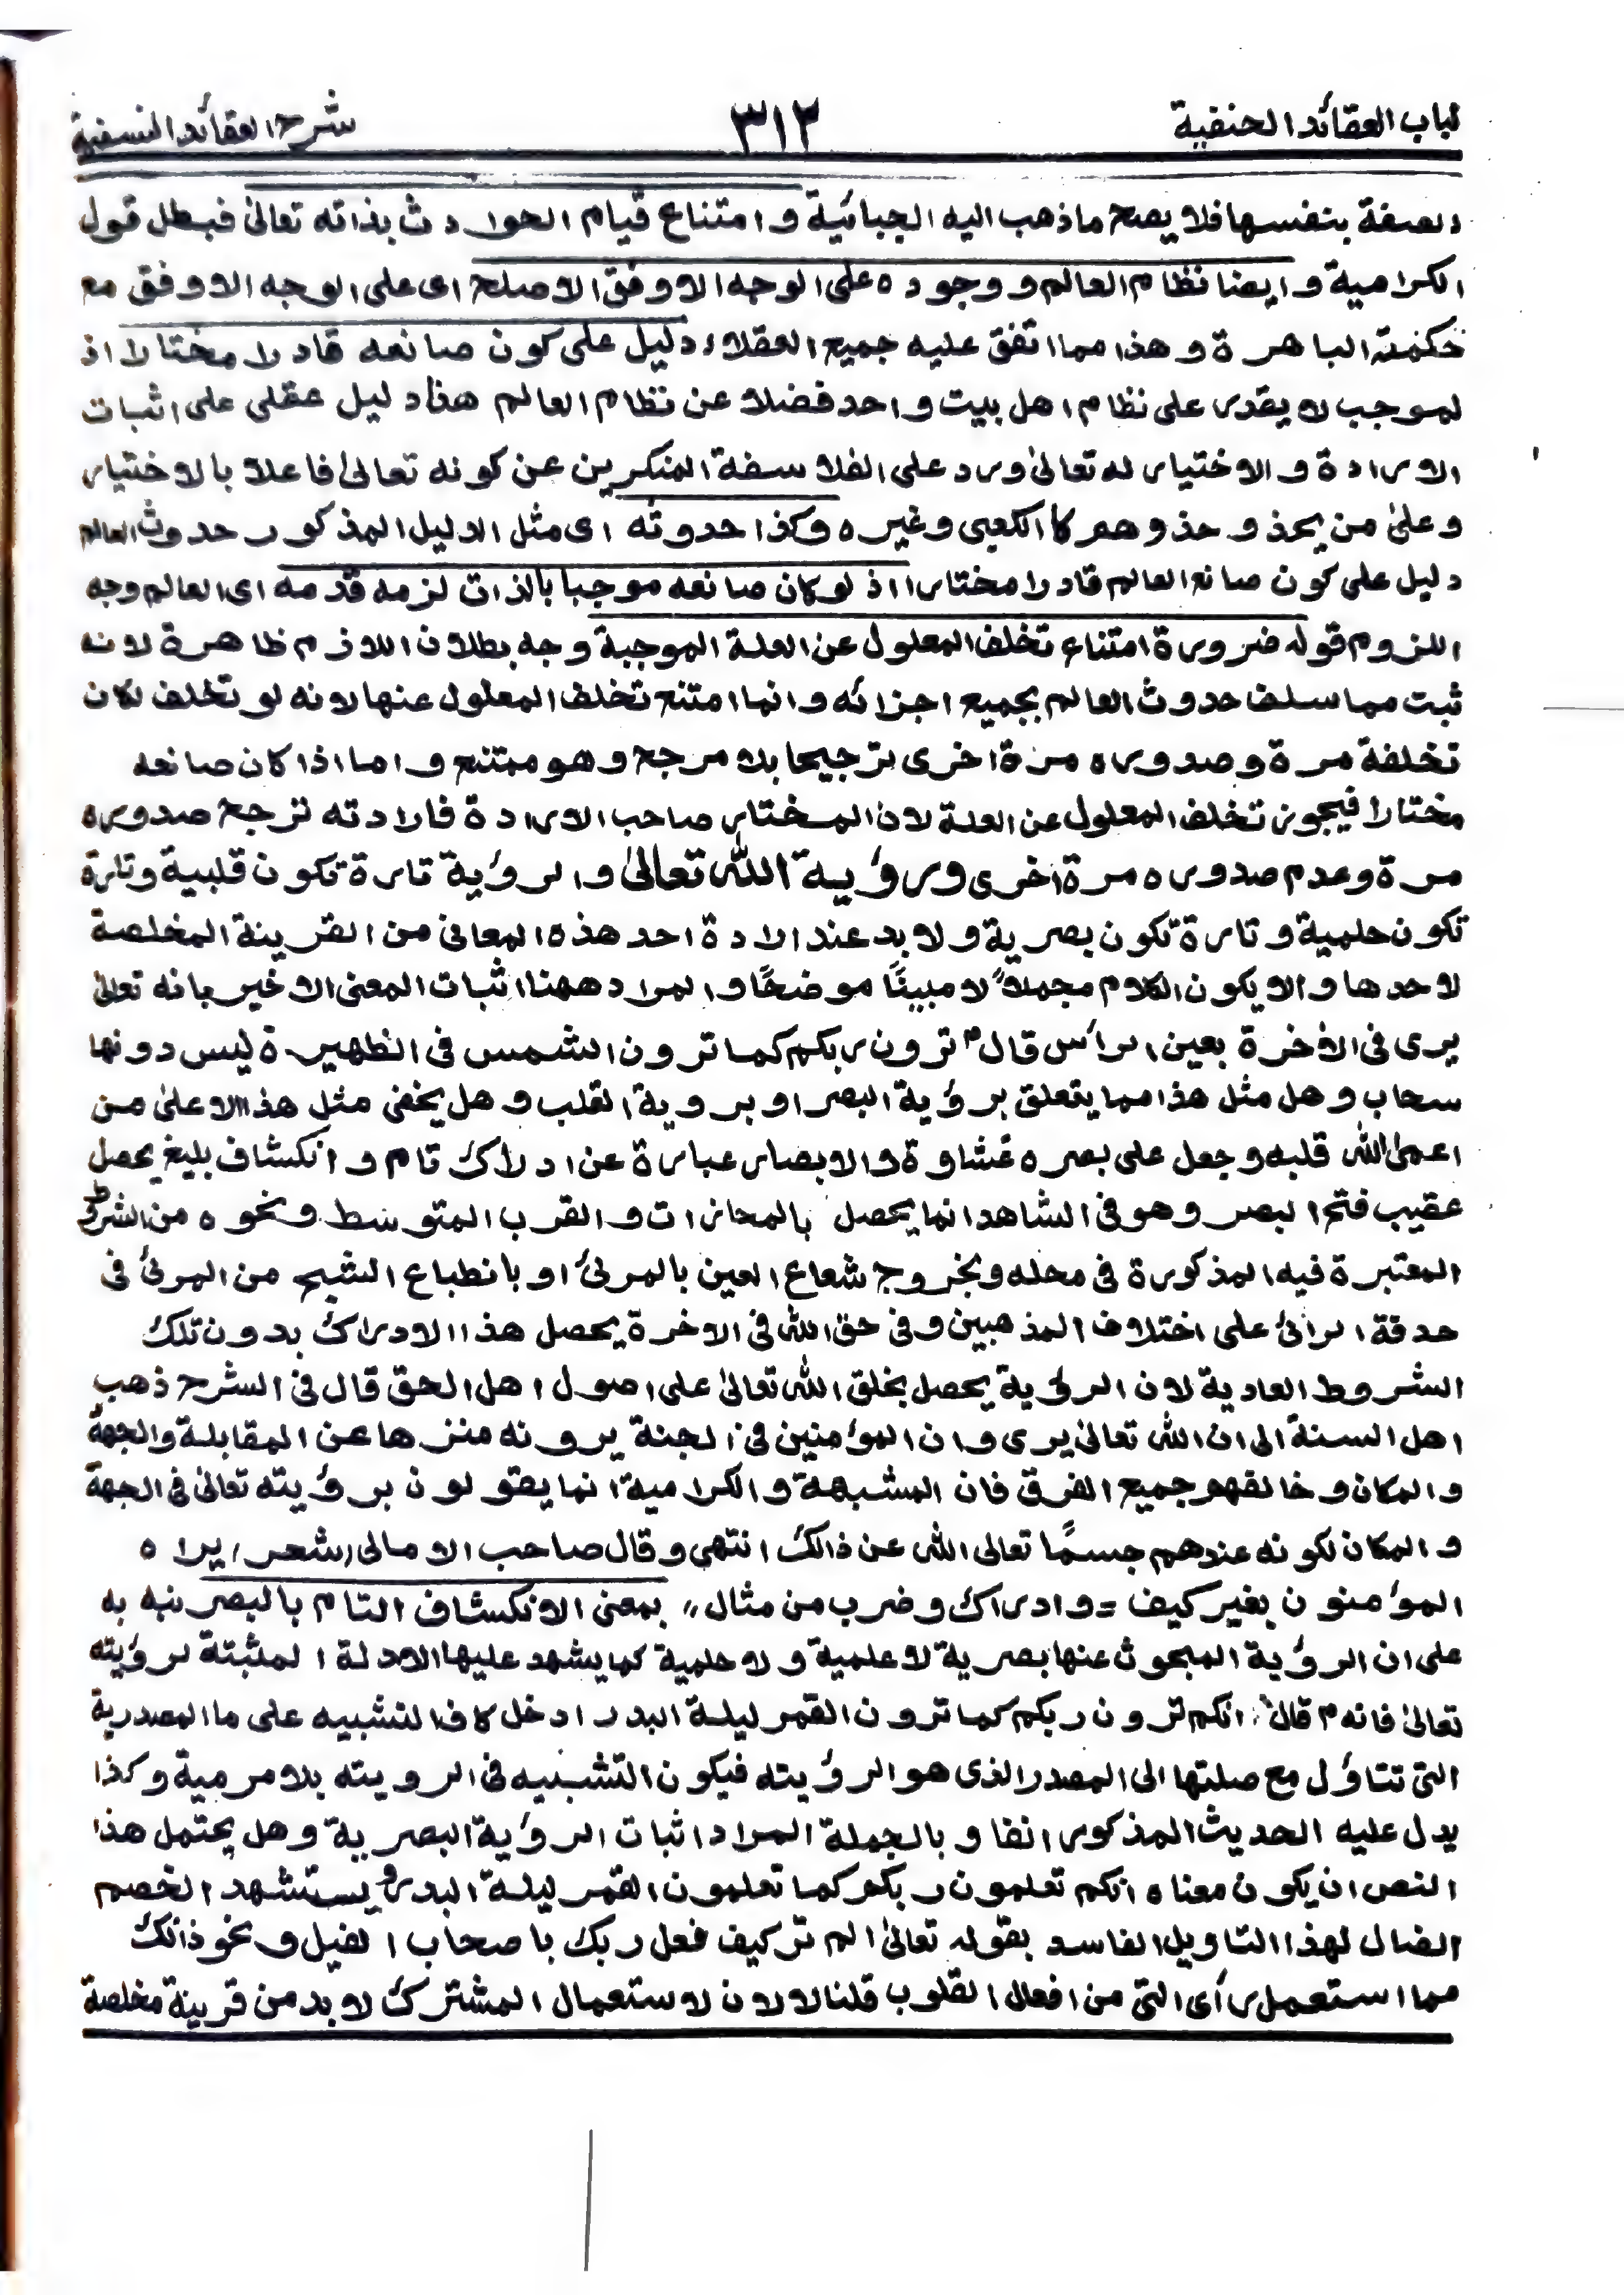 لباب العقائد الحنفية ٣١٢ شرح العقائد النسفية
الصفة بنفسها فلا يصح ما ذهب اليه الجبائية و امتناع قيام الحوادث بذاته تعالىٰ فبطل قول
الكرامية و ايضا نظام العالم و وجوده على الوجه الاوفق الاصلح اى على الوجه الاوفق مع
حكمته الباهرة و هذا مما اتفق عليه جميع العقلاء دليل على كون صانعه قادرا مختارا اذ
لموجب لا يقدر على نظام اهل بيت واحد فضلا عن نظام العالم هذا دليل عقلى على اثبات
الارادة و الاختيار له تعالىٰ ورد على الفلاسفة المنكرين عن كونه تعالىٰ فاعلا بالاختيار
و علىٰ من يحذو حذوهم كا الكعبى وغيره وكذا حدوثه اى مثل الدليل المذكور حدوث العالم
دليل على كون صانع العالم قادرا مختارا اذ لو كان صانعه موجبا بالذات لزمه قدمه اى العالم وجه
اللزوم قوله ضرورة امتناع تخلف المعلول عن العلة الموجبة وجه بطلان اللازم ظاهرة لانه
ثبت مما سلف حدوث العالم بجميع اجزائه و انما امتنع تخلف المعلول عنها لانه لو تخلف لكان
تخلفة مرة و صدوره مرة اخرى ترجيحا بلا مرجح و هو ممتنع و اما اذا كان صانعه
مختارا فيجوز تخلف المعلول عن العلة لان المختار صاحب الارادة فارادته ترجح صدوره
مرة وعدم صدوره مرة اخرى ورؤية اللّٰه تعالىٰ و الرؤية تارة تكون قلبية وتارة
تكون حلمية و تارة تكون بصرية و لا بد عند ارادة احد هذه المعانى من القرينة المخلصة
لاحدها و الا يكون الكلام مجملاً لا مبينًا موضحًا و المراد ههنا اثبات المعنى الاخير بانه تعالىٰ
يرى فى الاٰخرة بعين الرأس قال ؐ ترون ربكم كما ترون الشمس فى الظهيرة ليس دونها
سحاب و هل مثل هذا مما يتعلق برؤية البصر او بروية القلب و هل يخفى مثل هذا الا علىٰ من
اعمىٰ اللّٰه قلبه و جعل على بصره غشاوة و الابصار عبارة عن ادراك تام و انكشاف بليغ يحصل
عقيب فتح البصر و هو فى الشاهد انما يحصل بالمحازات و القرب المتوسط و نحوه من الشروط
المعتبرة فيه المذكورة فى محله و بخروج شعاع العين بالمرئ او بانطباع الشبح من المرئ فى
حدقة الرائ على اختلاف المذهبين و فى حق اللّٰه فى الاخرة يحصل هذا الادراك بدون تلك
الشروط العادية لان الرؤية يحصل بخلق اللّٰه تعالىٰ على اصول اهل الحق قال فى الشرح ذهب
اهل السنة الى ان اللّٰه تعالىٰ يرى و ان المؤمنين فى الجنة يرونه منزها عن المقابلة والجهة
و المكان و خالفهم جميع الفرق فان المشبهة و الكرامية انما يقولون برؤيته تعالىٰ فى الجهة
و المكان لكونه عندهم جسمًا تعالى اللّٰه عن ذالك انتهى و قال صاحب الامالى (شعر) يراه
المؤمنون بغير كيف = و ادراك و ضرب من مثال،، بمعنى الانكشاف التام بالبصر نبه به
على ان الرؤية المبحوث عنها بصرية لا علمية و لا حلمية كما يشهد عليها الادلة المثبتة لرؤيته
تعالىٰ فانه ؐ قال انكم ترون ربكم كما ترون القمر ليلة البدر ادخل كاف التشبيه على ما المصدرية
التى تتاؤل مع صلتها الى المصدر الذى هو الرؤيته فيكون التشبيه فى الرويته بلا مرمية و كذا
يدل عليه الحديث المذكور انفا و بالجملة المراد اثبات الرؤية البصرية و هل يحتمل هذا
النص ان يكون معناه انكم تعلمون ربكم كما تعلمون القمر ليلة البدر و يستشهد الخصم
الضال لهذا التاويل الفاسد بقوله تعالىٰ الم تر كيف فعل ربك باصحاب الفيل و نحو ذالك
مما استعمل رأى التى من افعال القلوب قلنا لا لان لاستعمال المشترك لا بد من قرينة مخلصة